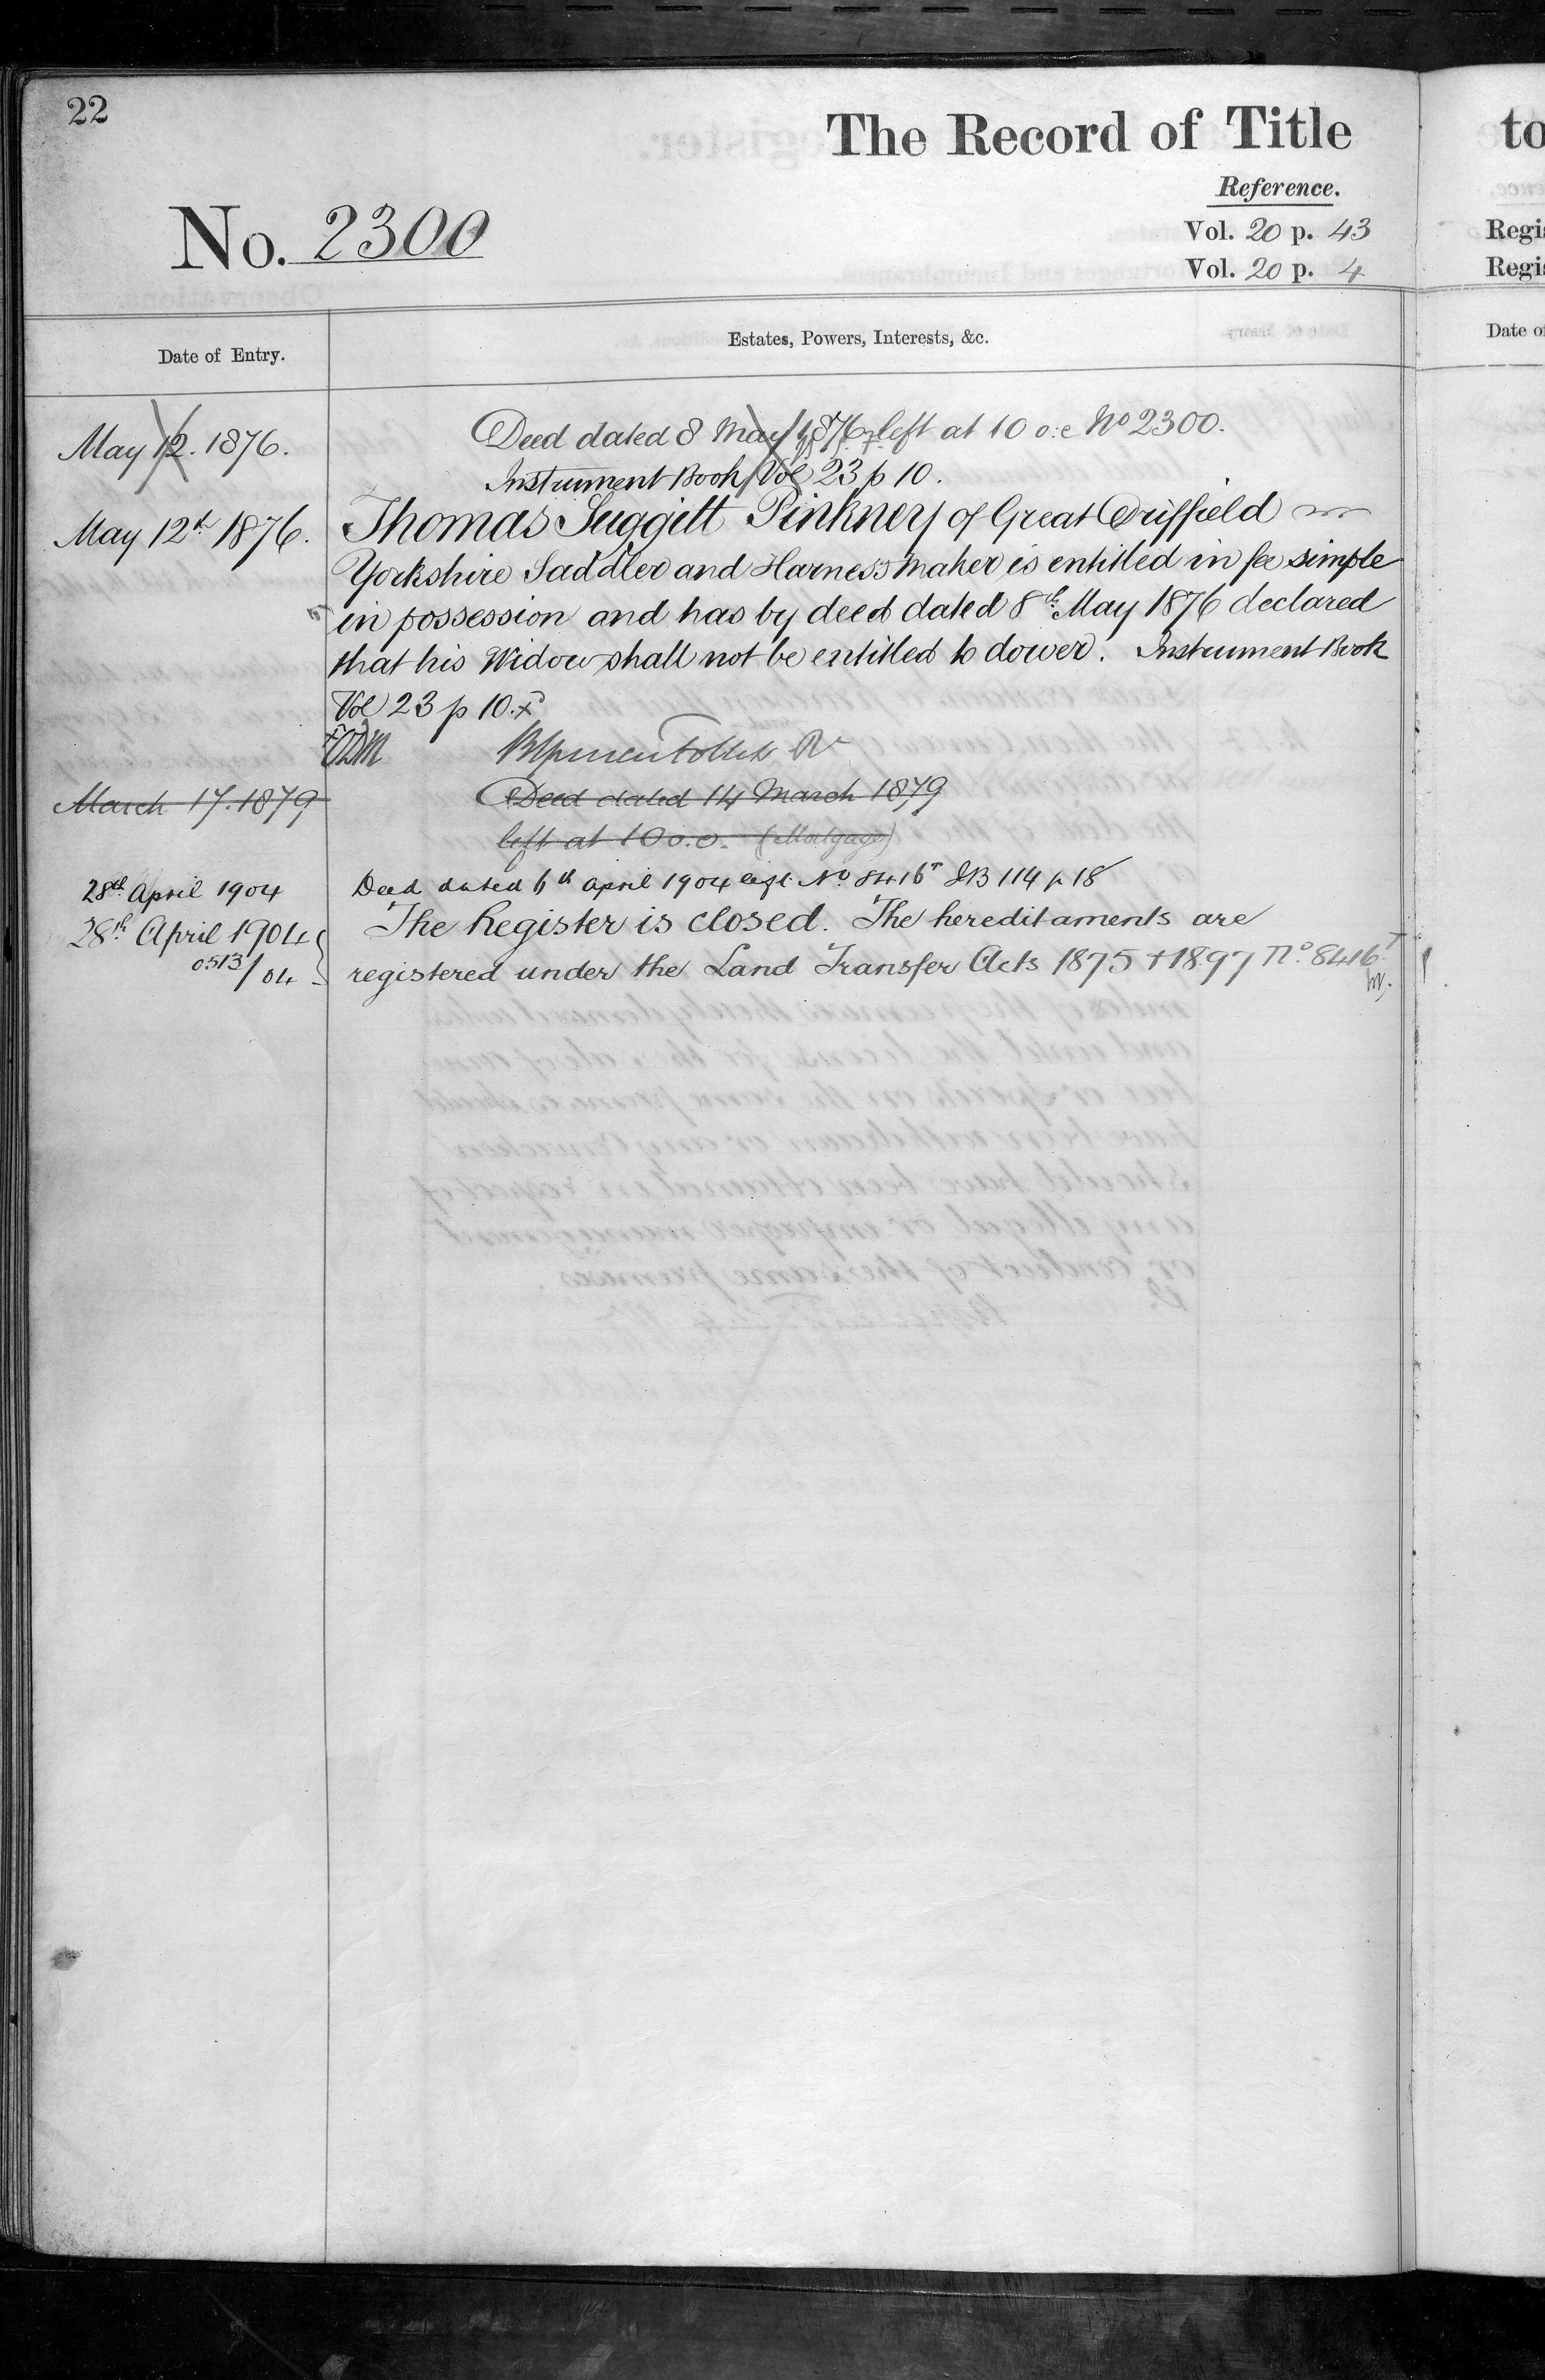 22
The Record of Title
Reference.
No. 2300
Vol. 20 p. 43
Vol. 20 p. 4
Date of Entry.
Estates, Powers, Interests, &c.
May 12. 1876.
Deed dated 8 May 1876 left at 10 o.c No 2300.
Instrument Book Vol 23 p 10.
May 12th 1876.
Thomas Suggitt Pinkney of Great Driffield
Yorkshire Saddler and Harness Maker is entitled in fee simple
in possession and has by deed dated 8th May 1876 declared
that his Widow shall not be entitled to dower. Instrument Book
Vol 23 p 10. x
March 17. 1879
Deed dated 14 March 1879
left at 10 o.c. (Mortgage)
28th April 1904
Deed dated 6th April 1904 left No 8416T IB 114 p 18
28th April 1904
0513/04
The Register is closed. The hereditaments are
registered under the Land Transfer Acts 1875 + 1897 No. 8416T
to
Regis
Regis
Date of